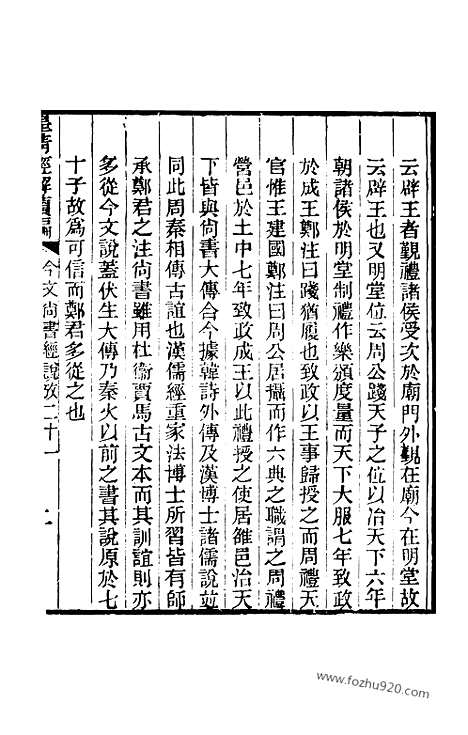 云辟王者覲禮諸侯受次於廟門外覲在廟今在明堂故
云辟王也又明堂位云周公踐天子之位以治天下六年
朝諸侯於明堂制禮作樂頒度量而天下大服七年致政
於成王鄭注曰踐猶履也致政以王事歸授之而周禮天
官惟王建國鄭注曰周公居攝而作六典之職謂之周禮
營邑於土中七年致政成王以此禮授之使居雒邑治天
下皆與尚書大傳合今據韓詩外傳及漢博士諸儒說竝
同此周秦相傳古誼也漢儒經重家法博士所習皆有師
承鄭君之注尚書雖用杜衞賈馬古文本而其訓誼則亦
多從今文說蓋伏生大傳乃秦火以前之書其說原於七
十子故爲可信而鄭君多從之也
皇清經解續編
今文尚書經說攷二十一
二
www.fozhu920.com